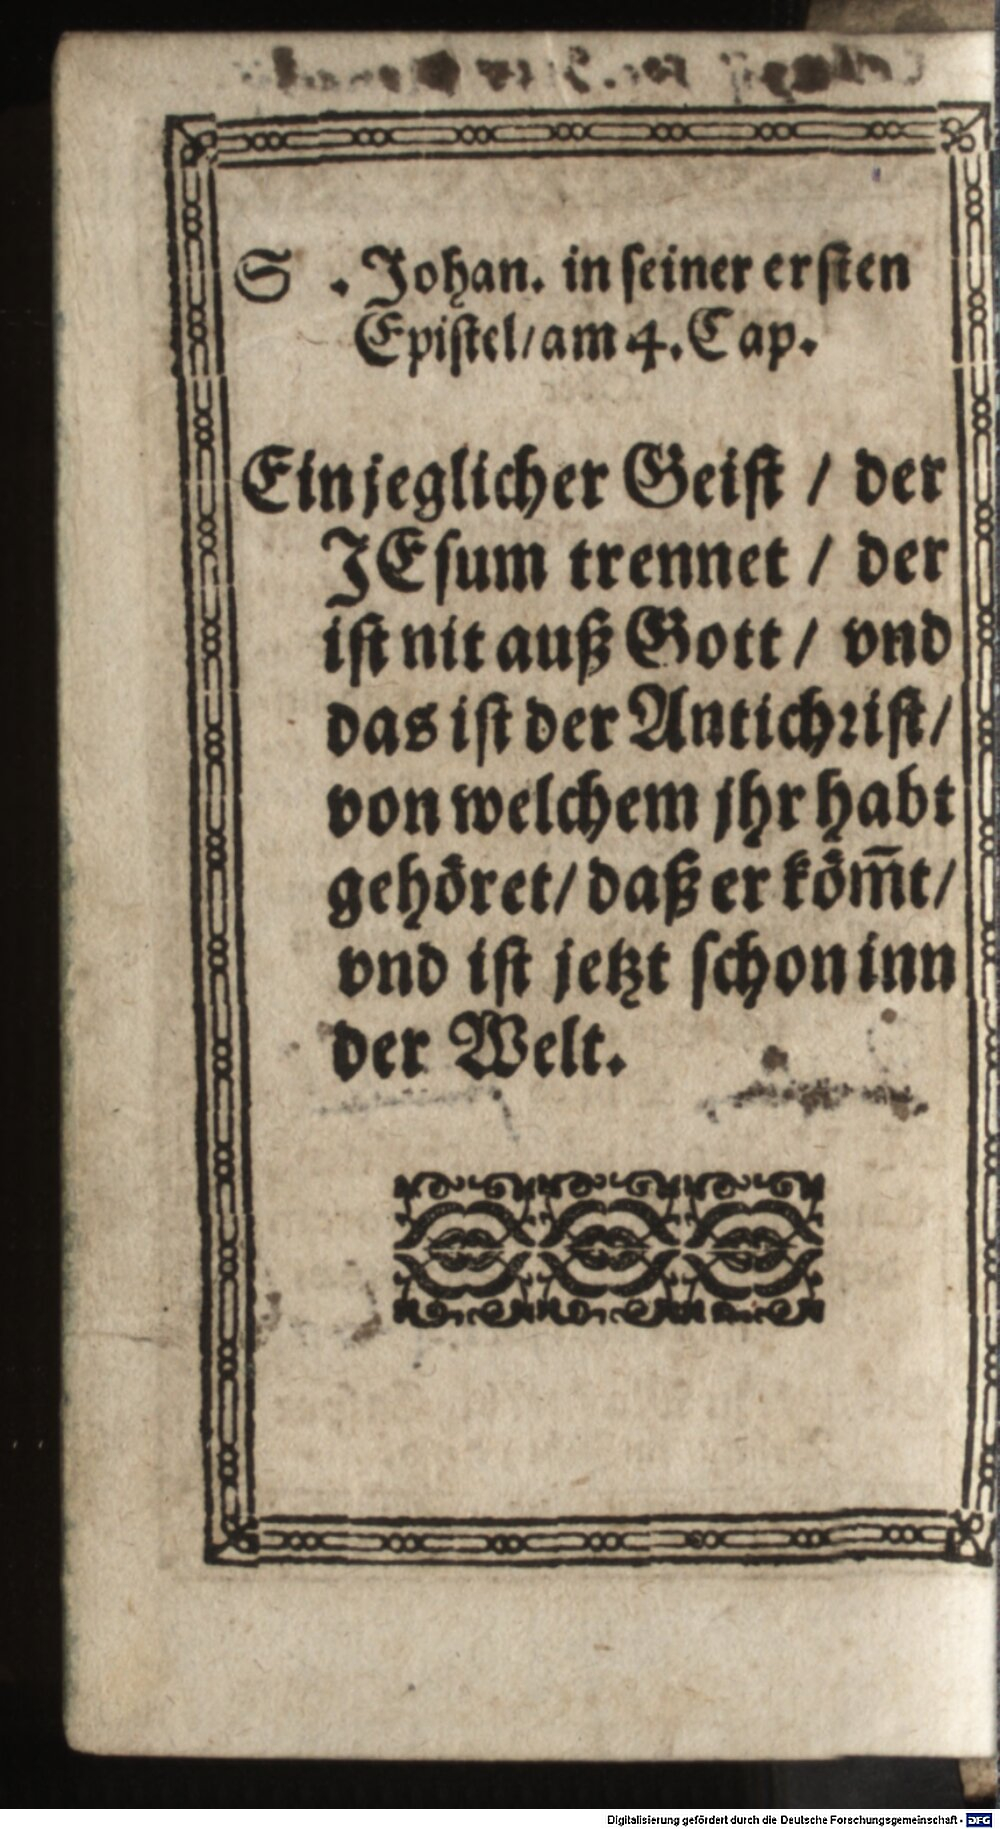 S. Johan. in seiner ersten
Epistel/ am 4. Cap.
Ein jeglicher Geist / der
JEsum trennet / der
ist nit auß Gott / vnd
das ist der Antichrist /
von welchem jhr habt
gehöret / daß er köm̄t /
vnd ist jetzt schon inn
der Welt.
Digitalisierung gefördert durch die Deutsche Forschungsgemeinschaft - DFG